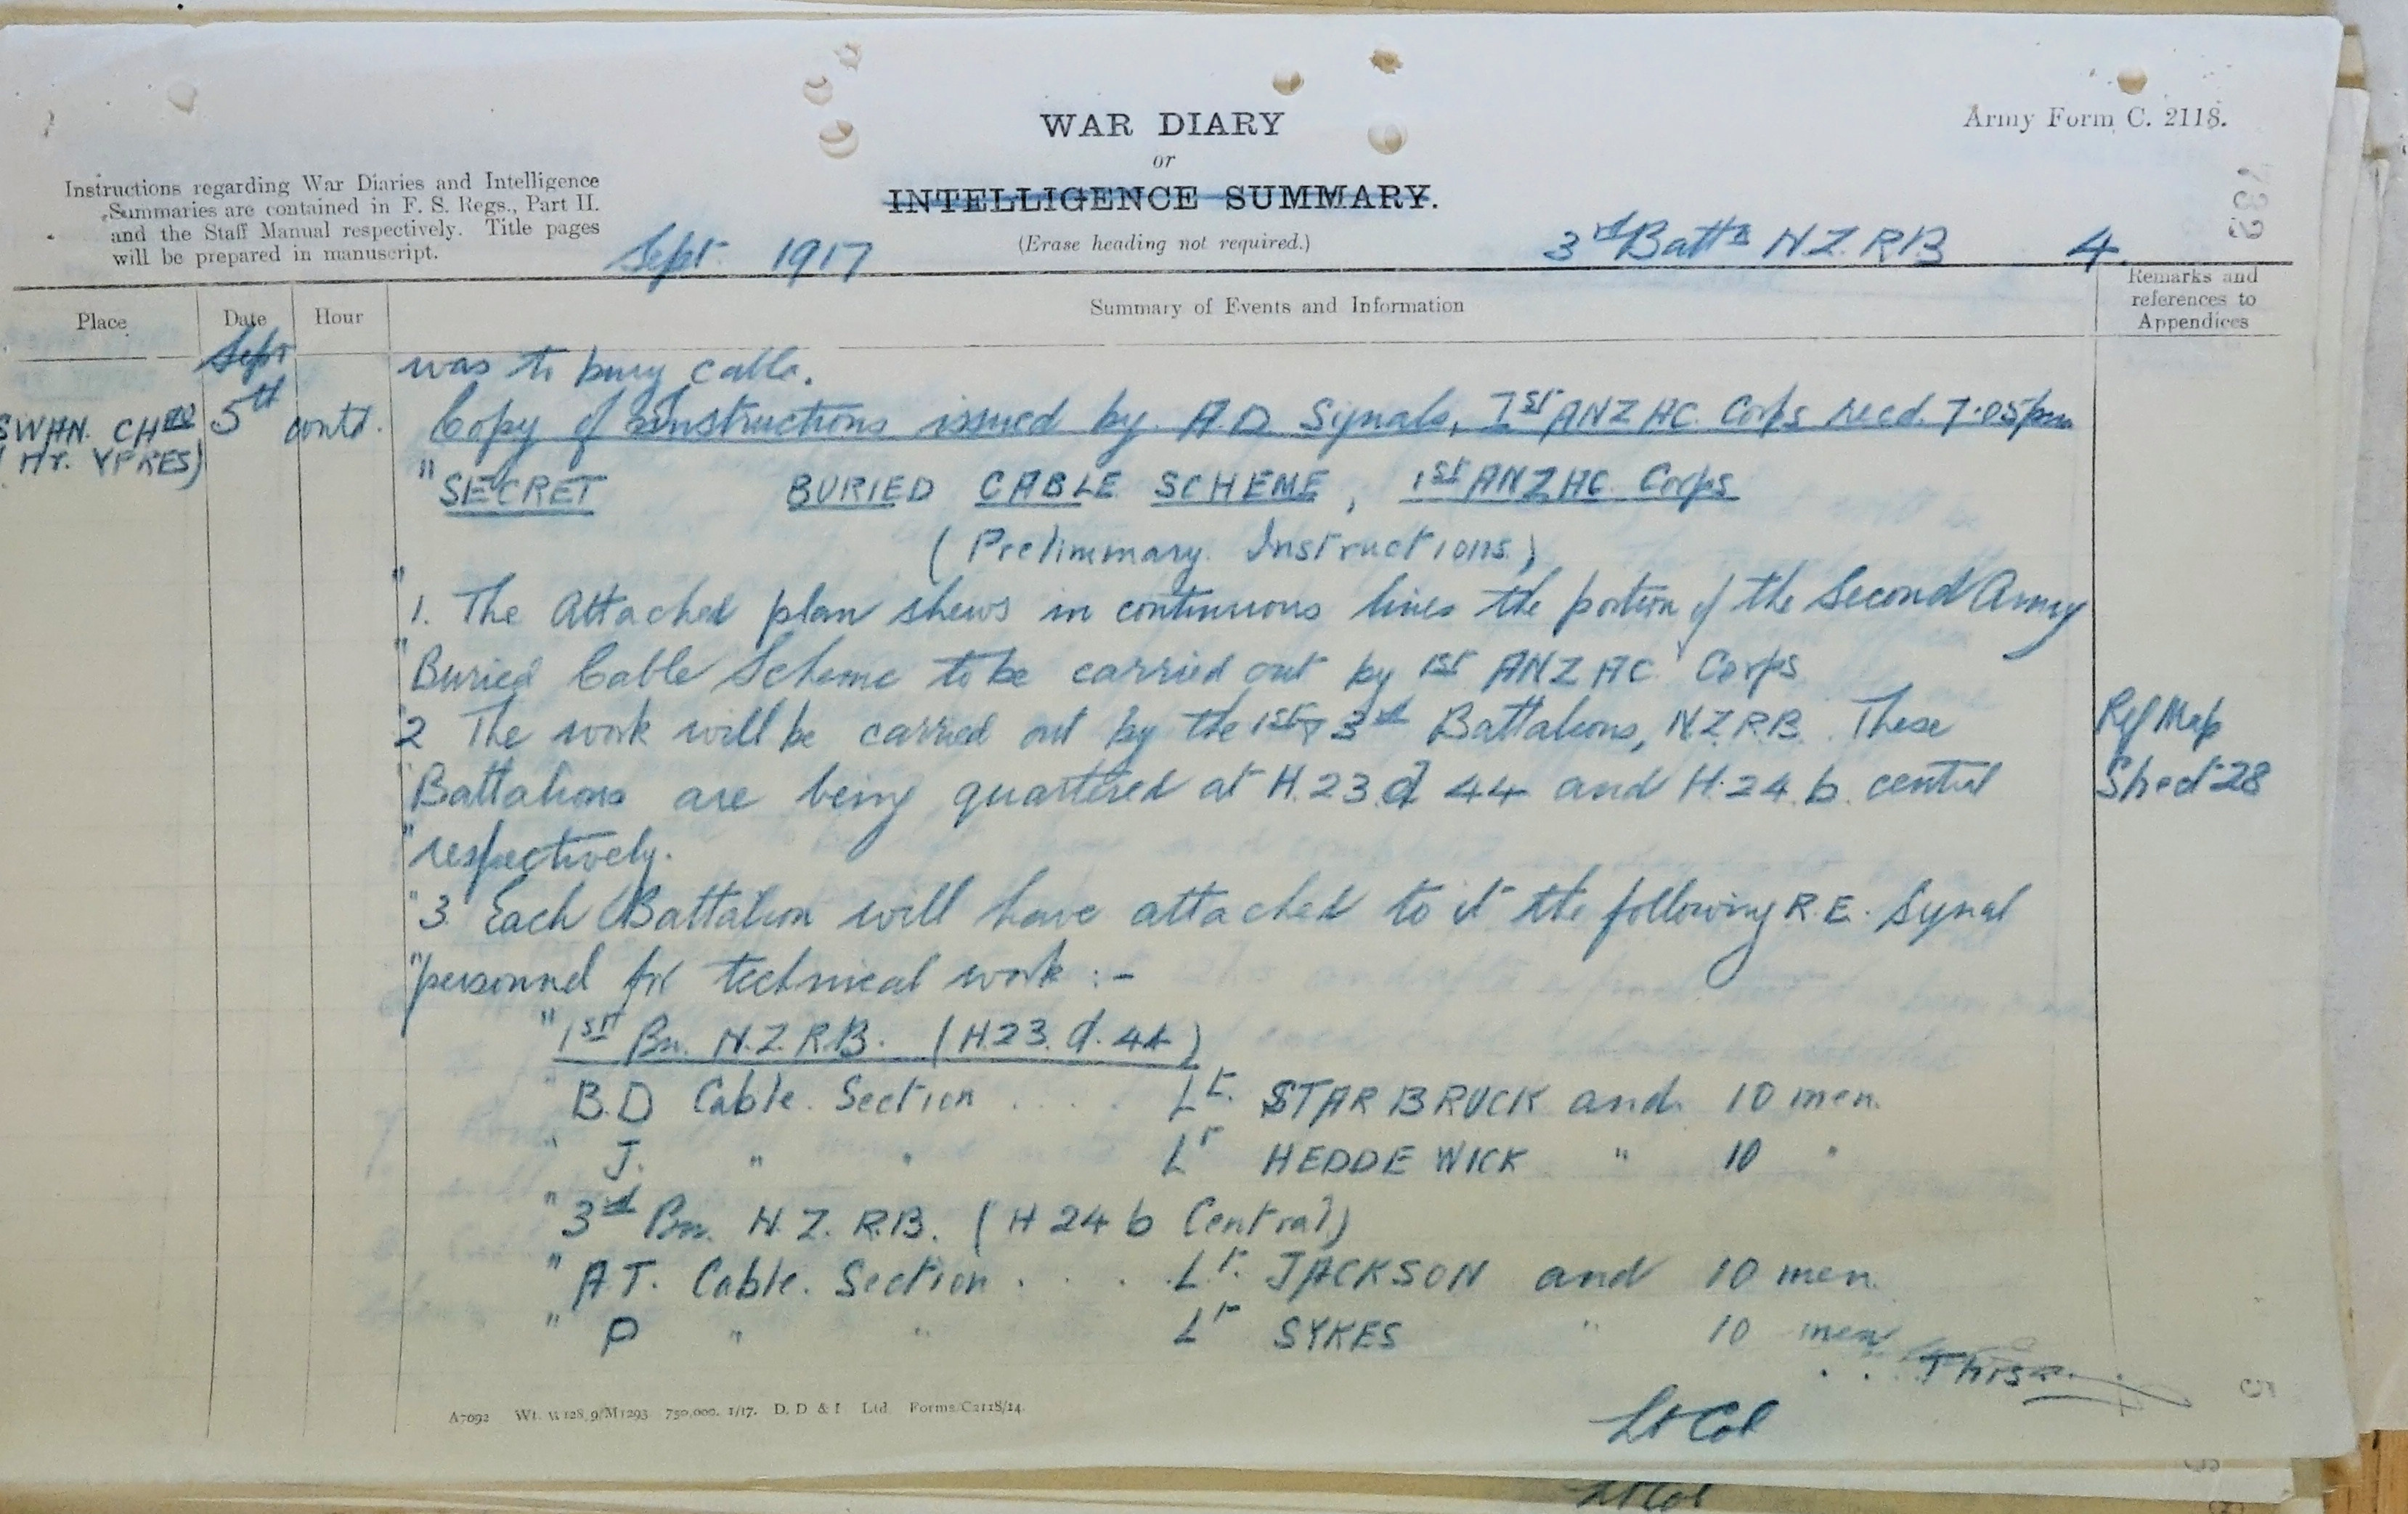 Army Form C. 2118.
WAR DIARY
or
INTELLIGENCE SUMMARY.
(Erase heading not required.)
Instructions regarding War Diaries and Intelligence
Summaries are contained in F. S. Regs., Part II.
and the Staff Manual respectively. Title pages
will be prepared in manuscript.
Sept. 1917
3rd Battn N.Z.R.B
4.
Place Date Hour Summary of Events and Information Remarks and references to Appendices
Sept
was to bury cable.
SWAN. CHAU 5th contd. Copy of Instructions issued by A.D Signals, 1st ANZAC. Corps recd. 7.05pm
(Nr. YPRES)
"SECRET BURIED CABLE SCHEME, 1st ANZAC Corps
(Preliminary Instructions.)
"1. The Attached plan shews in continuous lines the portion of the Second Army
"Buried Cable Scheme to be carried out by 1st ANZAC Corps
"2 The work will be carried out by the 1st & 3rd Battalions, N.Z.R.B. These
"Battalions are being quartered at H.23.d 44 and H.24.b. central
Ref Map
Sheet 28
"respectively.
"3. Each Battalion will have attached to it the following R.E. Signal
"personnel for technical work :-
"1st Bn. N.Z.R.B. (H.23.d.44)
" B.D Cable. Section .... Lt. STARBRUCK and 10 men.
" J. " " Lt HEDDEWICK " 10 "
"3rd Bn. N.Z.R.B. (H 24 b Central)
" A.T. Cable. Section .... Lt. JACKSON and 10 men.
" P " " Lt SYKES " 10 men
Lt Col
A7092 Wt. W128.9/M1293 750,000. 1/17. D. D & L Ltd. Forms/C2118/14.
Lt Col